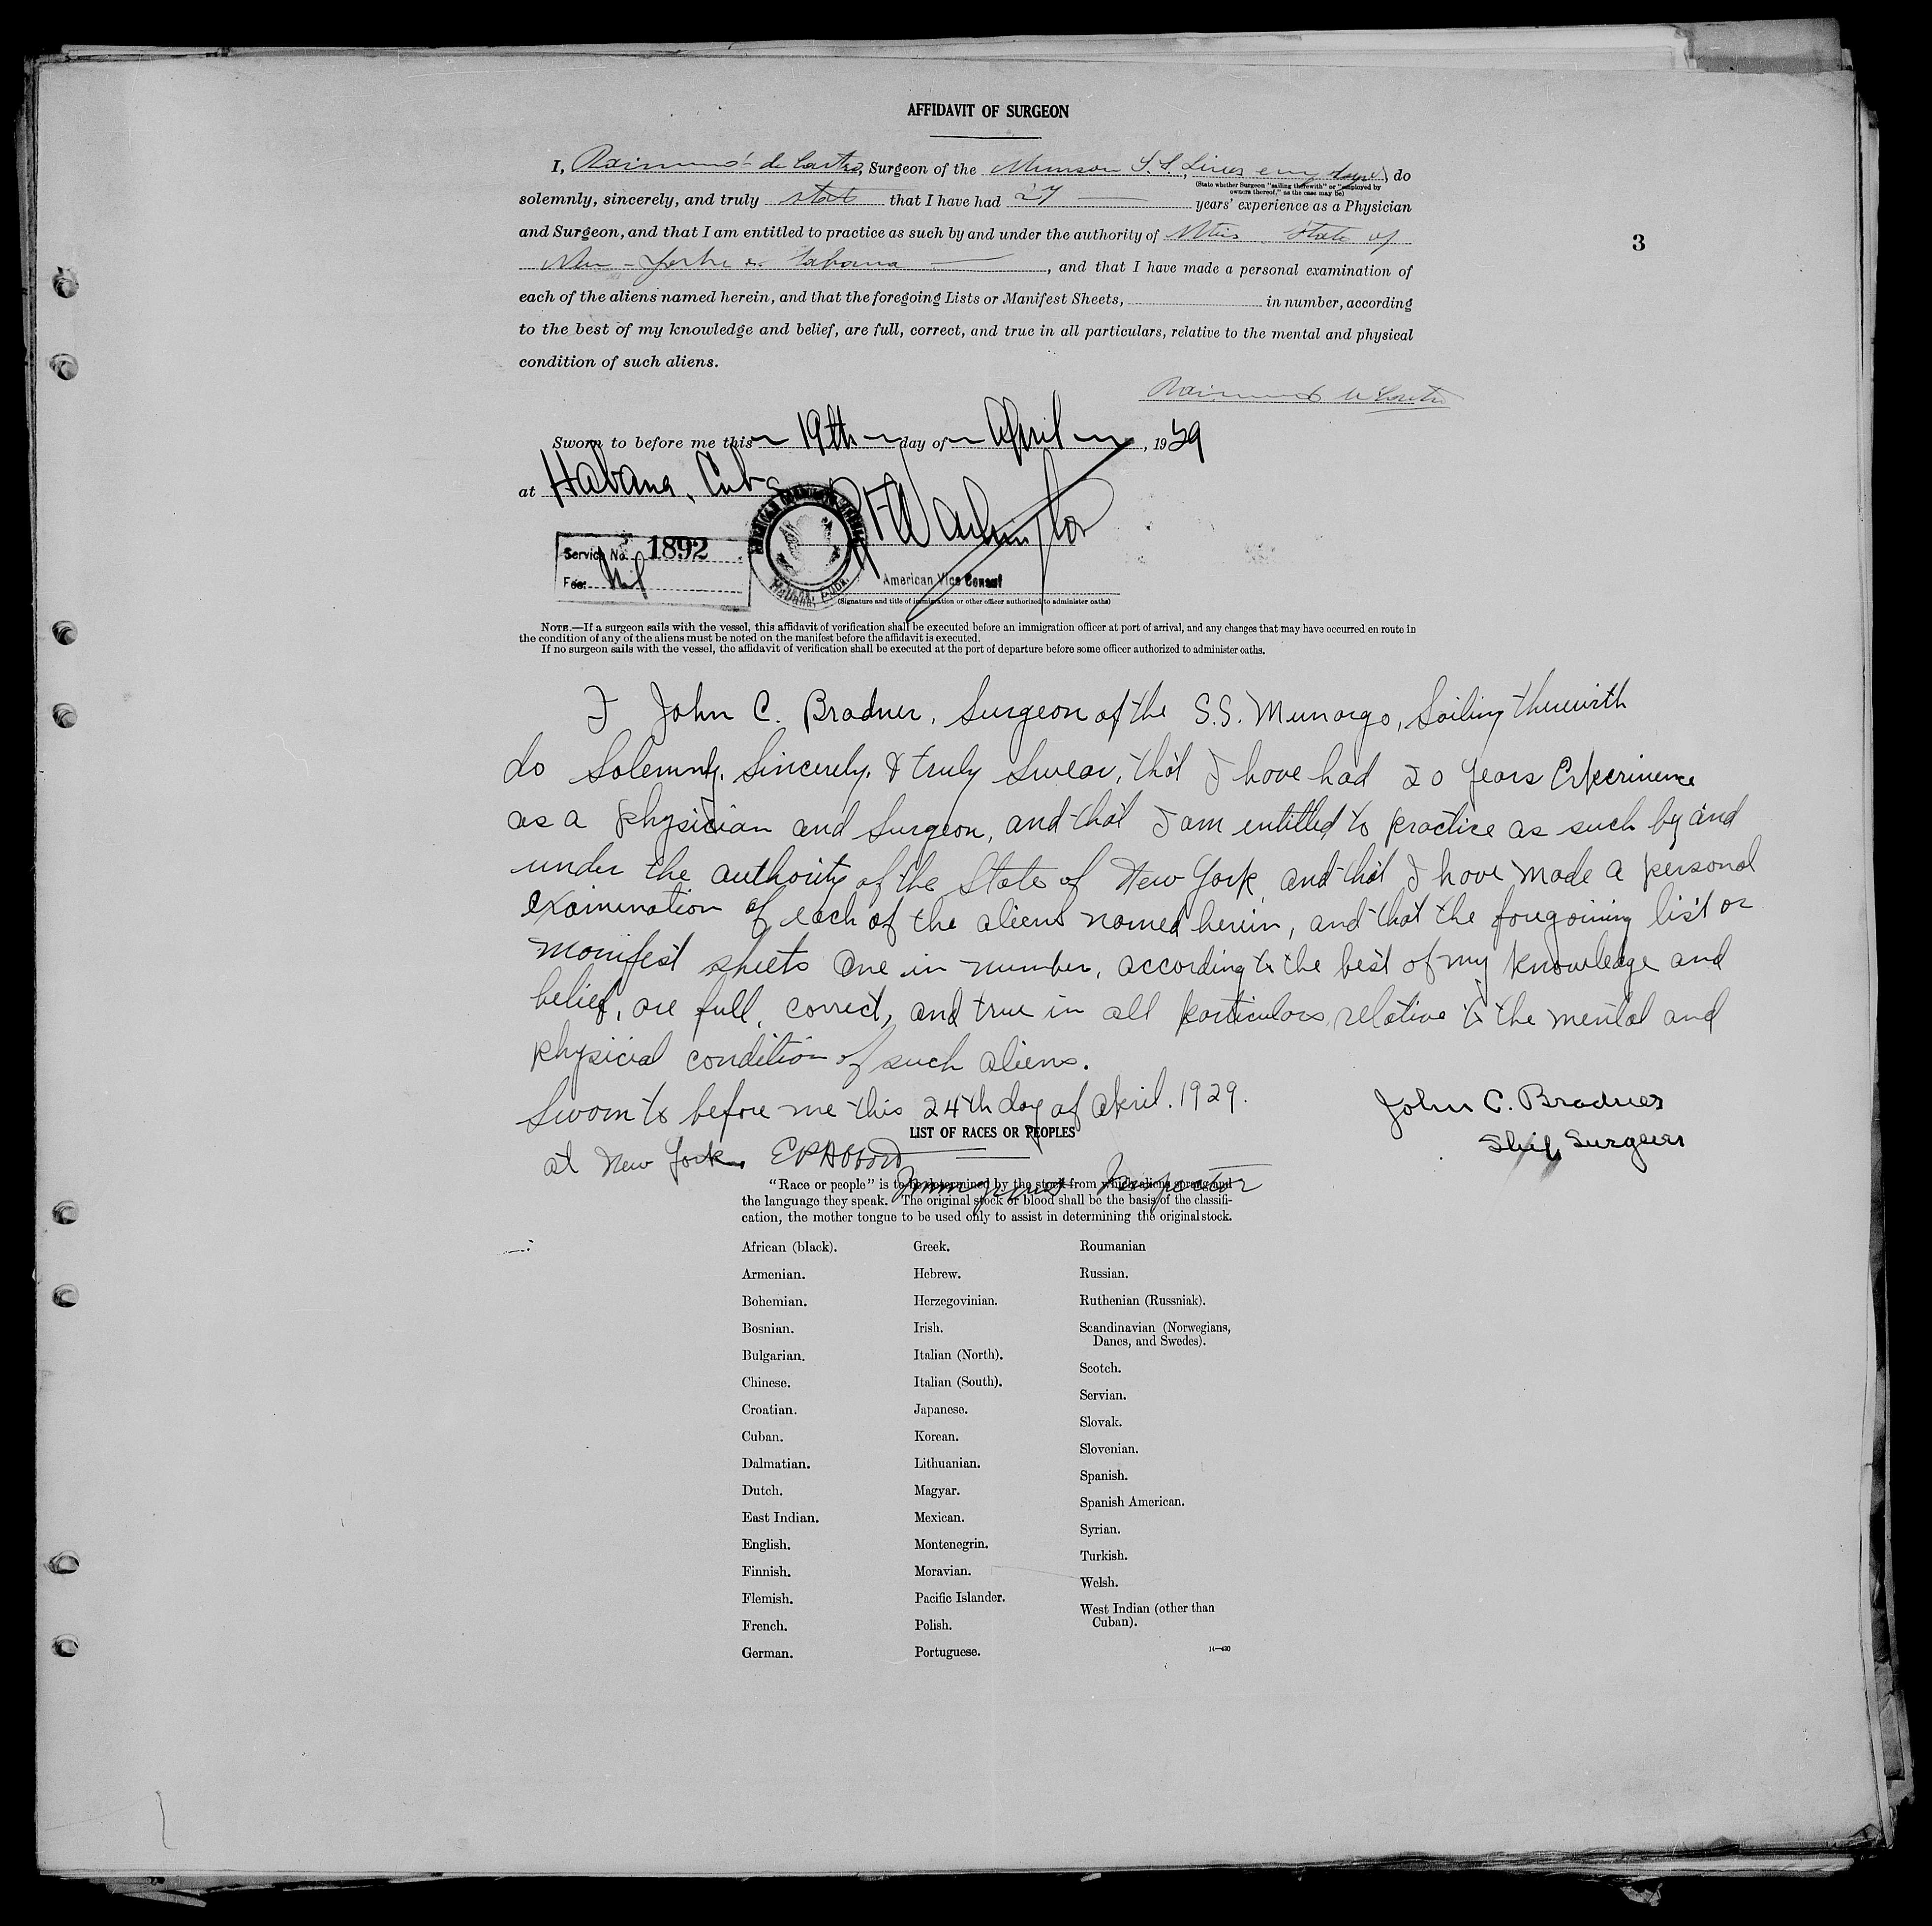 AFFIDAVIT OF SURGEON
I, Raimundo de Castro, Surgeon of the Munson S.S. Lines do
(State whether Surgeon "sailing therewith" or "employed by
owners thereof," as the case may be)
solemnly, sincerely, and truly state that I have had 27 years' experience as a Physician
and Surgeon, and that I am entitled to practice as such by and under the authority of State of
New York & Habana, and that I have made a personal examination of
3
each of the aliens named herein, and that the foregoing Lists or Manifest Sheets, in number, according
to the best of my knowledge and belief, are full, correct, and true in all particulars, relative to the mental and physical
condition of such aliens.
Raimundo de Castro
Sworn to before me this 19th day of April, 1929
at Habana, Cuba
Washington
Service No. 1892
Fee: Nil
Habana, Cuba.
American Vice Consul
(Signature and title of immigration or other officer authorized to administer oaths)
NOTE.—If a surgeon sails with the vessel, this affidavit of verification shall be executed before an immigration officer at port of arrival, and any changes that may have occurred en route in
the condition of any of the aliens must be noted on the manifest before the affidavit is executed.
If no surgeon sails with the vessel, the affidavit of verification shall be executed at the port of departure before some officer authorized to administer oaths.
I John C. Bradner, Surgeon of the S.S. Munargo, Sailing therewith
do Solemnly, Sincerely, & truly Swear, that I have had 20 years Experience
as a physician and Surgeon, and that I am entitled to practice as such by and
under the authority of the State of New York, and that I have made a personal
examination of each of the aliens named herein, and that the foregoining list or
manifest sheets one in number, according to the best of my knowledge and
belief, are full, correct, and true in all particulars, relative to the mental and
physicial condition of such aliens.
Sworn to before me this 24th day of April. 1929.
John C. Bradner
Ship Surgeon
LIST OF RACES OR PEOPLES
at New York.
Immigrant Inspector
"Race or people" is to be determined by the stock from which aliens sprang and
the language they speak. The original stock or blood shall be the basis of the classifi-
cation, the mother tongue to be used only to assist in determining the original stock.
African (black).
Armenian.
Bohemian.
Bosnian.
Bulgarian.
Chinese.
Croatian.
Cuban.
Dalmatian.
Dutch.
East Indian.
English.
Finnish.
Flemish.
French.
German.
Greek.
Hebrew.
Herzegovinian.
Irish.
Italian (North).
Italian (South).
Japanese.
Korean.
Lithuanian.
Magyar.
Mexican.
Montenegrin.
Moravian.
Pacific Islander.
Polish.
Portuguese.
Roumanian
Russian.
Ruthenian (Russniak).
Scandinavian (Norwegians,
Danes, and Swedes).
Scotch.
Servian.
Slovak.
Slovenian.
Spanish.
Spanish American.
Syrian.
Turkish.
Welsh.
West Indian (other than
Cuban).
14—430